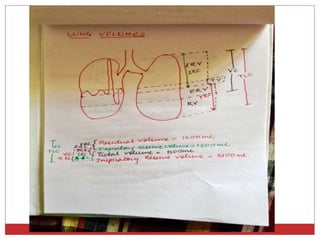 LUNG VOLUMES
IRV
IRC
VC
TLC
ERV
FRC
RV
Residual volume = 1200ml
TLC Expiratory reserve volume = 1200 ml
VC Tidal volume = 500ml
Inspiratory Reserve volume = 3200ml